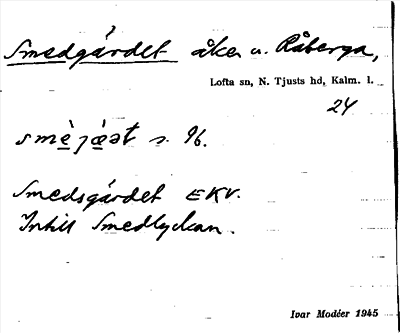 Smedgärdet åker u. Råberga,
Lofta sn, N. Tjusts hd, Kalm. l.
24
smè̠jæ̠̀ət s. 96.
Smedsgärdet EKV.
Intill Smedlyckan.
Ivar Modéer 1945